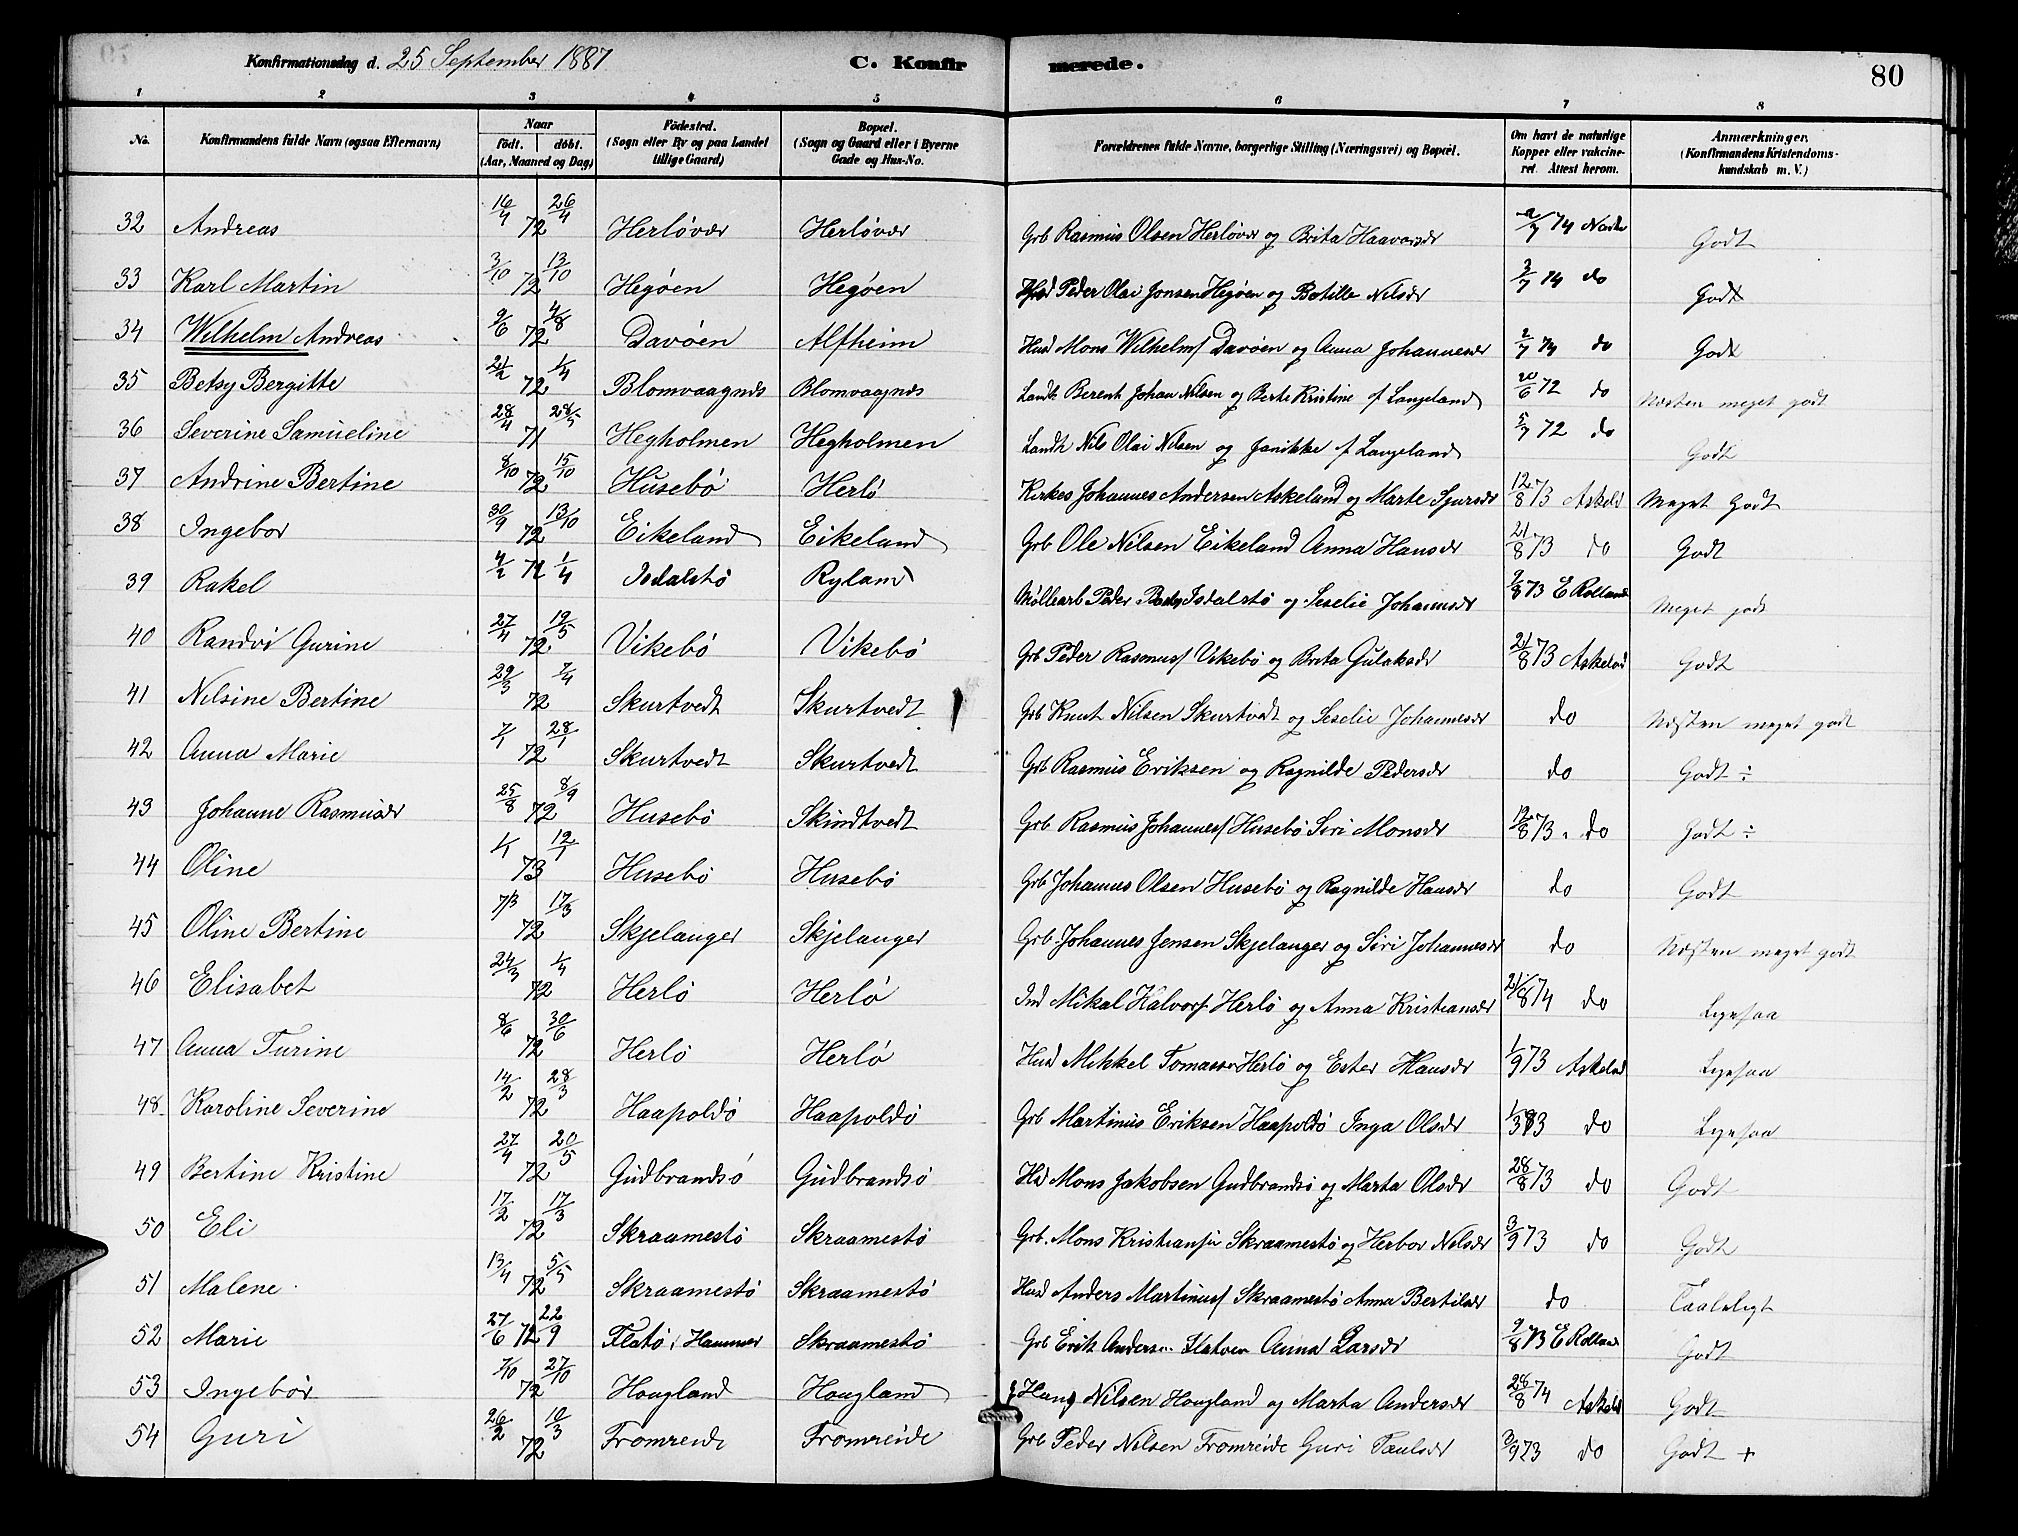 Konfirmationsdag d. 25 September 1887 C. Konfirmerede. 80
1 2 3 4 5 6 7 8
No. Konfirmandens fulde Navn (ogsaa Efternavn) Naar født. døbt. (Aar, Maaned og Dag) Fødested. (Sogn eller By og paa Landet tillige Gaard) Bopæl. (Sogn og Gaard eller i Byerne Gade og Hus-No. Forældrenes fulde Navne, borgerlige Stilling (Næringsvei) og Bopæl. Om havt de naturlige Kopper eller vakcineret. Attest herom. Anmærkninger. (Konfirmandens Kristendomskundskab m. V.)
32 Andreas 16/4 26/4 72 Herløvær Herløvær Grb Rasmus Olsen Herløvær og Brita Haavorsdr /7 74 Godt
33 Karl Martin 3/10 13/10 72 Hegøen Hegøen Husd Peder Olai Jonsen Hegøen og Botille Nilsdr 3/7 74 do Godt
34 Wilhelm Andreas 9/6 4/8 72 Davøen Alfheim Husd Mons Wilhelms Davøen og Anna Johannesdr 2/7 74 do Godt
35 Betsy Bergitte 21/2 1/4 72 Blomvaagnes Blomvaagnes Landh Berent Johan Nilsen og Berte Kristine f Langeland 20/6 72 do Næsten meget godt
36 Severine Samueline 28/4 28/5 71 Hegholmen Hegholmen Landh Nils Olai Nilsen og Janikke f Langeland 5/7 72 do Godt
37 Andrine Bertine 8/10 15/10 72 Husebø Herlø Kirkes Johannes Andersen Askeland og Marte Sjursdr 12/8 73 Askeld Meget Godt
38 Ingebor 30/9 13/10 72 Eikeland Eikeland Grb Ole Nilsen Eikeland Anna Hansdr 21/8 73 do Godt
39 Rakel 4/2 72 1/4 Isdalstø Ryland Møllearb Peder Isdalstø og Seselie Johannsdr 9/8 73 E Rolland Meget godt
40 Randvi Gurine 27/4 19/5 72 Vikebø Vikebø Grb Peder Rasmus Vikebø og Brita Gulaksdr 21/8 73 Askeland Godt
41 Nilsine Bertine 29/3 7/4 72 Skurtvedt Skurtvedt Grb Knut Nilsen Skurtvedt og Seselie Johannesdr do Næsten meget godt
42 Anna Marie 1/1 28/1 72 Skurtvedt Skurtvedt Grb Rasmus Eriksen og Ragnilde Pedersdr do Godt ÷
43 Johanne Rasmusdr 25/8 8/9 72 Husebø Skindtvedt Grb Rasmus Johannes Husebø Siri Monsdr 12/8 73 do Godt ÷
44 Oline 1/1 12/1 73 Husebø Husebø Grb Johannes Olsen Husebø og Ragnilde Hansdr do Godt
45 Oline Bertine 7/3 17/3 72 Skjelanger Skjelanger Grb. Johannes Jensen Skjelanger og Siri Johannesdr do Næsten meget godt
46 Elisabet 24/3 1/4 72 Herlø Herlø Ind Mikal Halvors Herlø og Anna Kristiansdr 21/8 74 do
47 Anna Turine 8/6 30/6 72 Herlø Herlø Husd Mikkel Tomassen Herlø og Ester Hansdr 1/9 73 Askelad
48 Karoline Severine 14/2 28/3 72 Haapoldø Haapoldø Grb Martinus Eriksen Haapoldø Inga Olsdr do
49 Bertine Kristine 27/4 20/5 72 Gudbrandsø Gudbrandsø Hd Mons Jakobsen Gudbrandsø og Marta Olsdr 28/8 73 do Godt
50 Eli 17/2 17/3 72 Skraamestø Skraamestø Grb. Mons Kristiansen Skraamestø og Herbor Nilsdr 3/9 73 do Godt
51 Malene 13/4 5/5 72 Skraamestø Skraamestø Husd Anders Martinus Skraamestø Anna Bertilsdr do Taaleligt
52 Marie 27/6 72 22/9 Flatø, Hammer Skraamestø Grb Erik Andersen Flatøen Anna Larsdr 9/8 73 E Rolland Godt
53 Ingebør 7/10 27/10 72 Hougland Hougland Hans Nilsen Hougland og Marta Andersdr 28/8 74 Askeld Godt
54 Guri 26/2 10/3 72 Fromreide Fromreide Grb Peder Nilsen Fromreide Guri Paulsdr 3/9 73 do Godt +